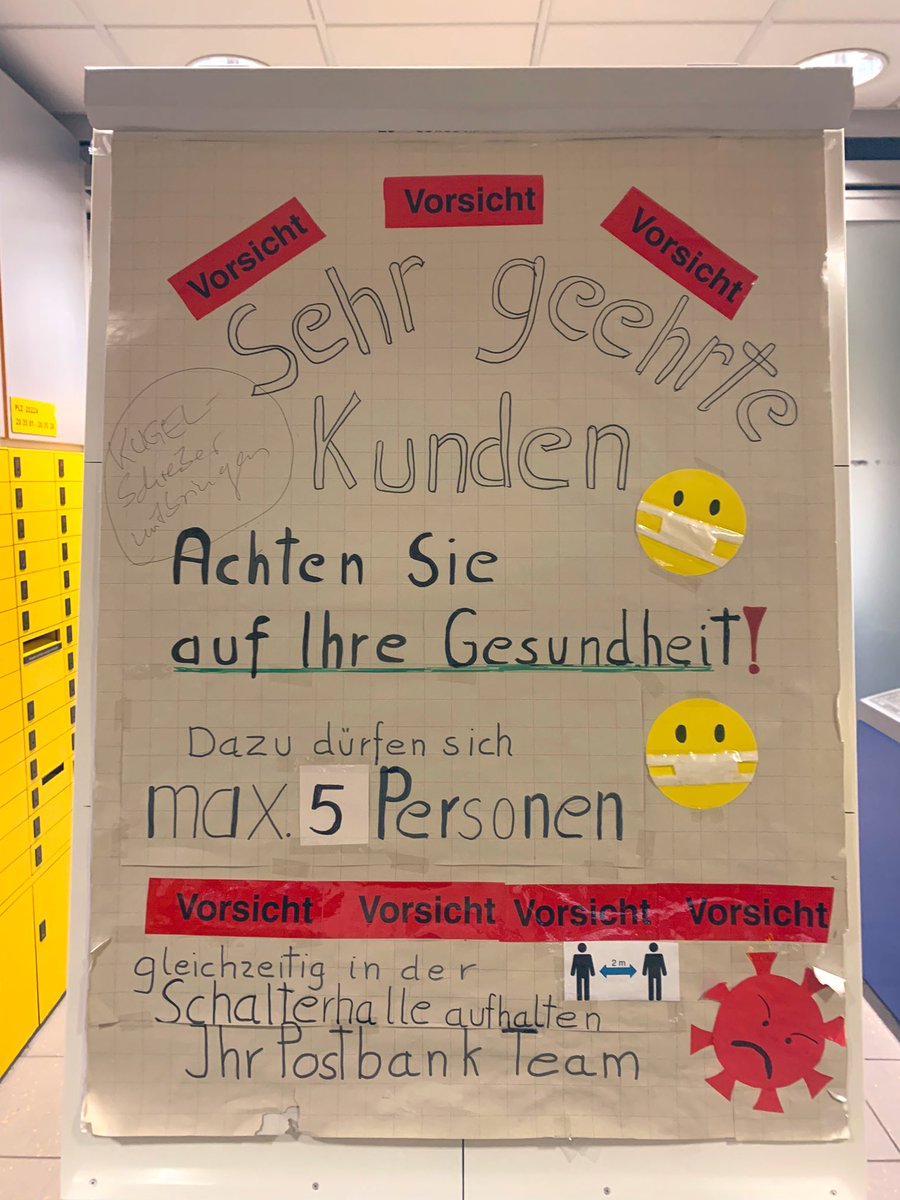 Vorsicht
Vorsicht
Vorsicht
Sehr geehrte
Kunden
KUGEL-
schreiber
mitbringen
Achten Sie
auf Ihre Gesundheit!
Dazu dürfen sich
max. 5 Personen
Vorsicht Vorsicht Vorsicht Vorsicht
gleichzeitig in der
2 m
Schalterhalle aufhalten
Ihr Postbank Team